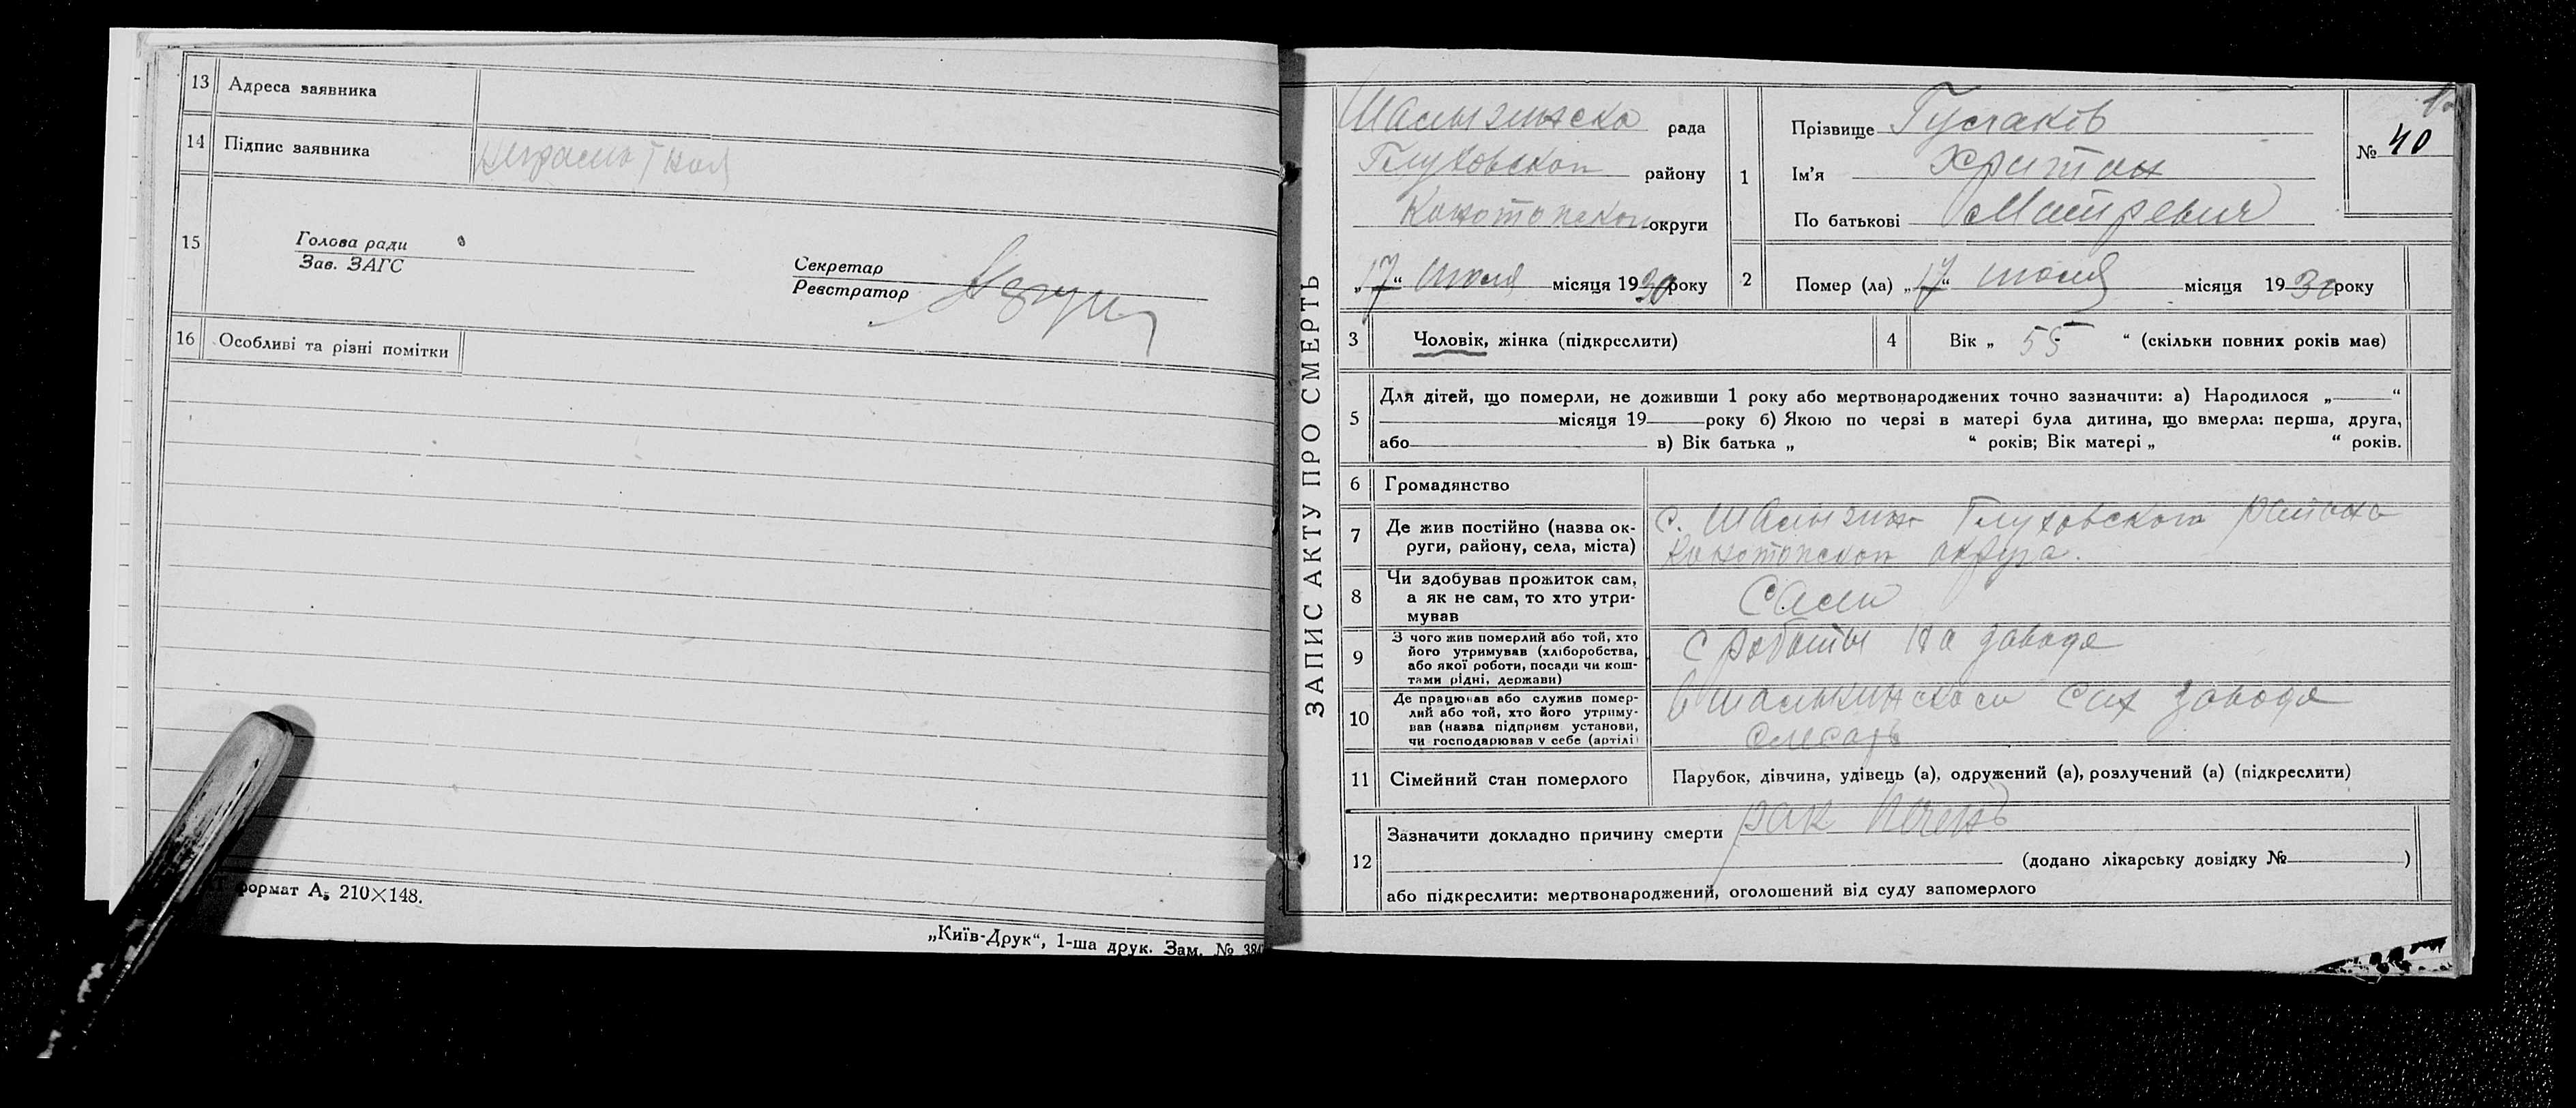 13 Адреса заявника
14 Підпис заявника
15 Голова ради
Зав. ЗАГС
Секретар
Реєстратор
16 Особливі та різні помітки
формат А5 210×148.
„Київ-Друк“, 1-ша друк. Зам. № 384
ЗАПИС АКТУ ПРО СМЕРТЬ
рада
Глуховской району
Конотопской округи
„17“ июля місяця 1930 року
1 Прізвище Гусаків
Ім'я Харитон
По батькові
№ 40
2 Помер (ла) „17“ июля місяця 1930 року
3 Чоловік, жінка (підкреслити)
4 Вік „ 55 “ (скільки повних років має)
5 Для дітей, що померли, не доживши 1 року або мертвонароджених точно зазначити: а) Народилося „ “
місяця 19 року б) Якою по черзі в матері була дитина, що вмерла: перша, друга,
або в) Вік батька „ “ років; Вік матері „ “ років.
6 Громадянство
7 Де жив постійно (назва ок-
руги, району, села, міста)
с. Шалыгин Глуховского района
Конотопской округа.
8 Чи здобував прожиток сам,
а як не сам, то хто утри-
мував
Сам
9 З чого жив померлий або той, хто
його утримував (хліборобства,
або якої роботи, посади чи кош-
тами рідні, держави)
с работы на заводе
10 Де працював або служив помер-
лий або той, хто його утриму-
вав (назва підприєм установи,
чи господарював у себе (артілі)
в Шалыгинском сах заводе
слесарь
11 Сімейний стан померлого
Парубок, дівчина, удівець (а), одружений (а), розлучений (а) (підкреслити)
12 Зазначити докладно причину смерти рак печень
(додано лікарську довідку № )
або підкреслити: мертвонароджений, оголошений від суду запомерлого